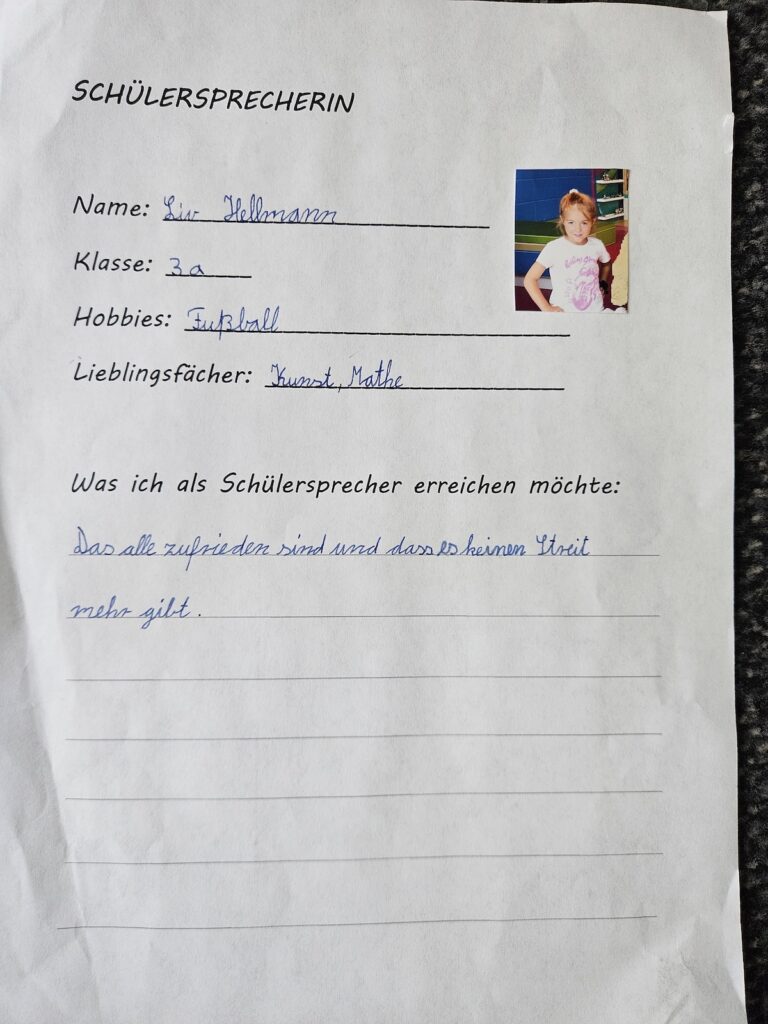 SCHÜLERSPRECHERIN
Name: Liv Hellmann
Klasse: 3a
Hobbies: Fußball
Lieblingsfächer: Kunst, Mathe
Was ich als Schülersprecher erreichen möchte:
Das alle zufrieden sind und dass es keinen Streit
mehr gibt.